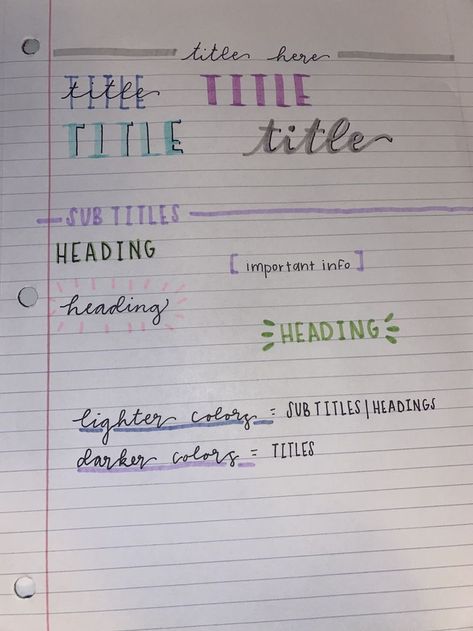 title here
TITLE title TITLE
TITLE title
SUBTITLES
HEADING
[important info]
heading
HEADING
lighter colors = SUBTITLES|HEADINGS
darker colors = TITLES